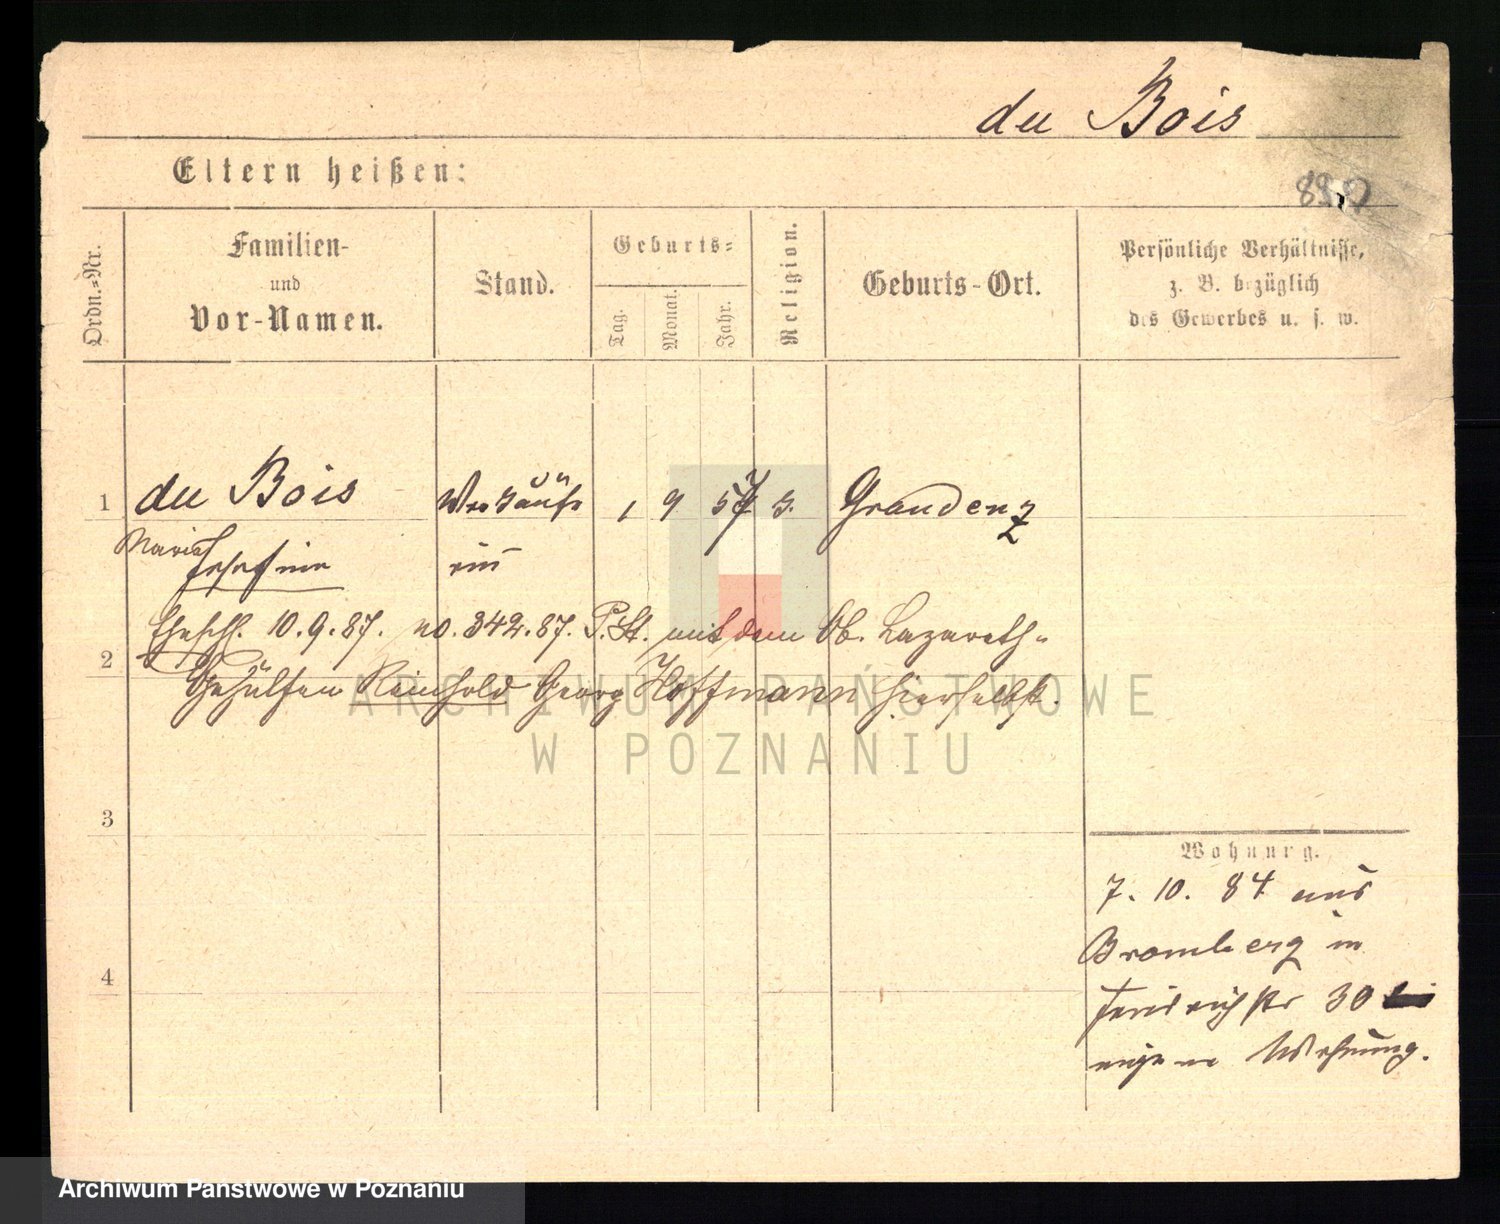 du Bois
Eltern heißen:
Ordn.=Nr.
Familien-
und
Vor-Namen.
Stand.
Geburts=
Tag.
Monat.
Jahr.
Religion.
Geburts-Ort.
Persönliche Verhältnisse,
z. B. bezüglich
des Gewerbes u. s. w.
1 du Bois Verkäufe 1 9 Graudenz
Marie
Josefine rin
Eheschl. 10.9.87. no. 342.87. P. St. mit dem Ob. Lazareth-
2
Gehülfen Reinhold Georg Hoffmann hierselbst.
3
Wohnung.
7. 10. 84 aus
Bromberg in
4
Friedrichstr 30
eigene Wohnung.
ARCHIWUM PAŃSTWOWE
W POZNANIU
Archiwum Państwowe w Poznaniu